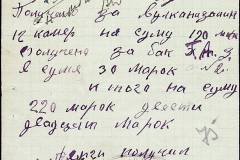 Получено за вулканизацию
12 камер на сумму 120 марок
Получена за бак
в сумме 30 марок
итого на сумму
220 марок двести
двадцать марок
Деньги получил